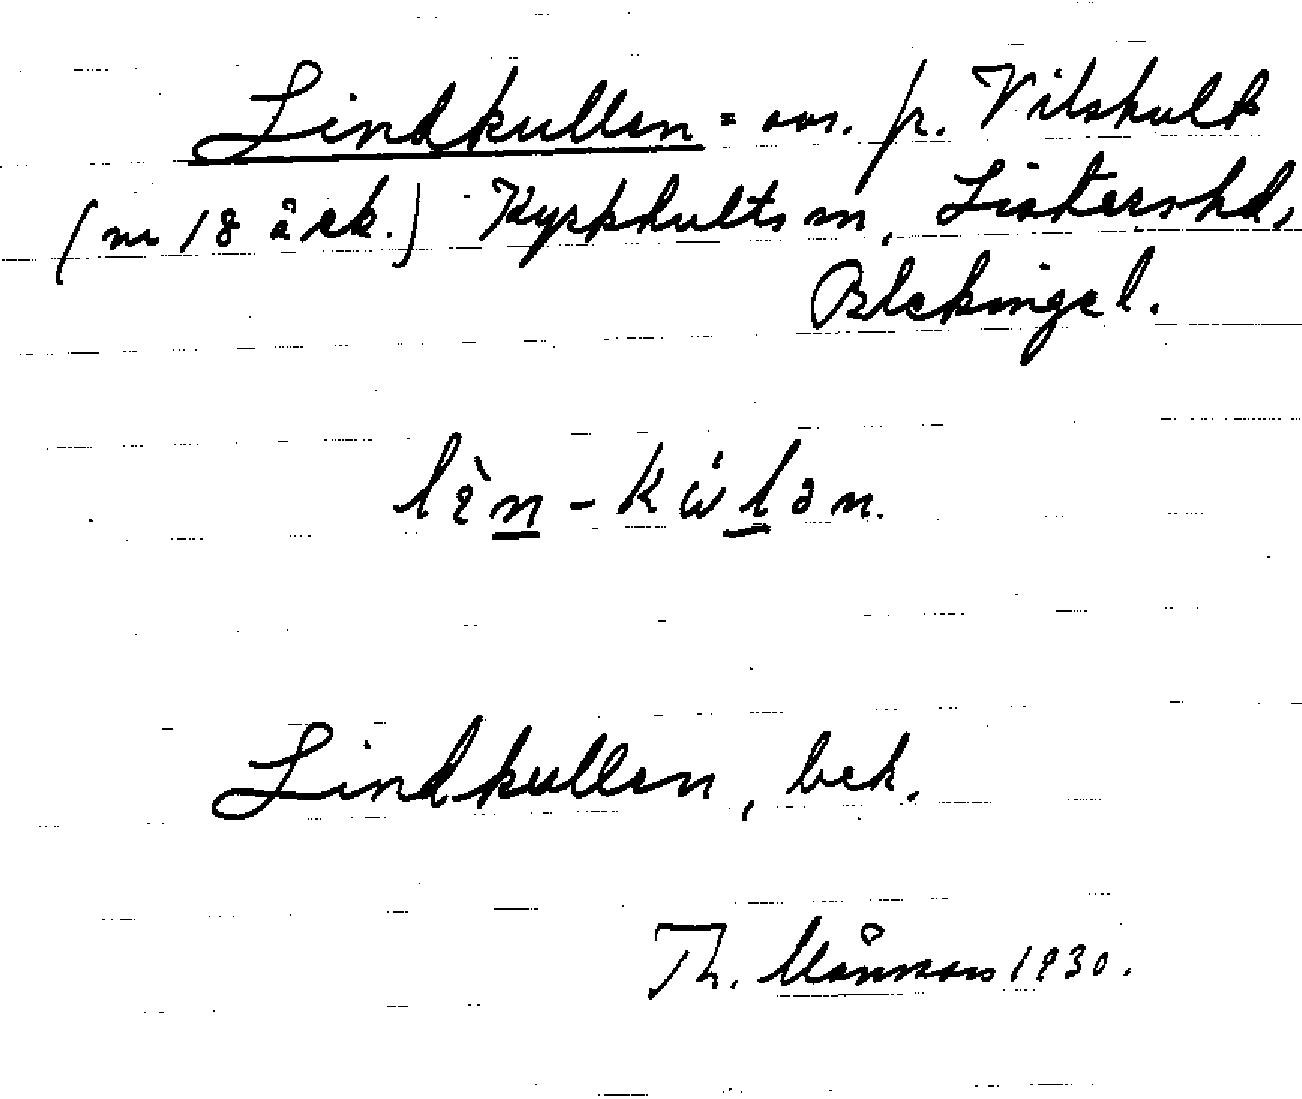 Lindkullen = avs. fr. Vilshult
(nr 18 å ek.) Kyrkhults sn, Listers hd,
Blekinge l.
lèn - kúlən.
Lindkullen, bek.
Th. Månsson 1930.